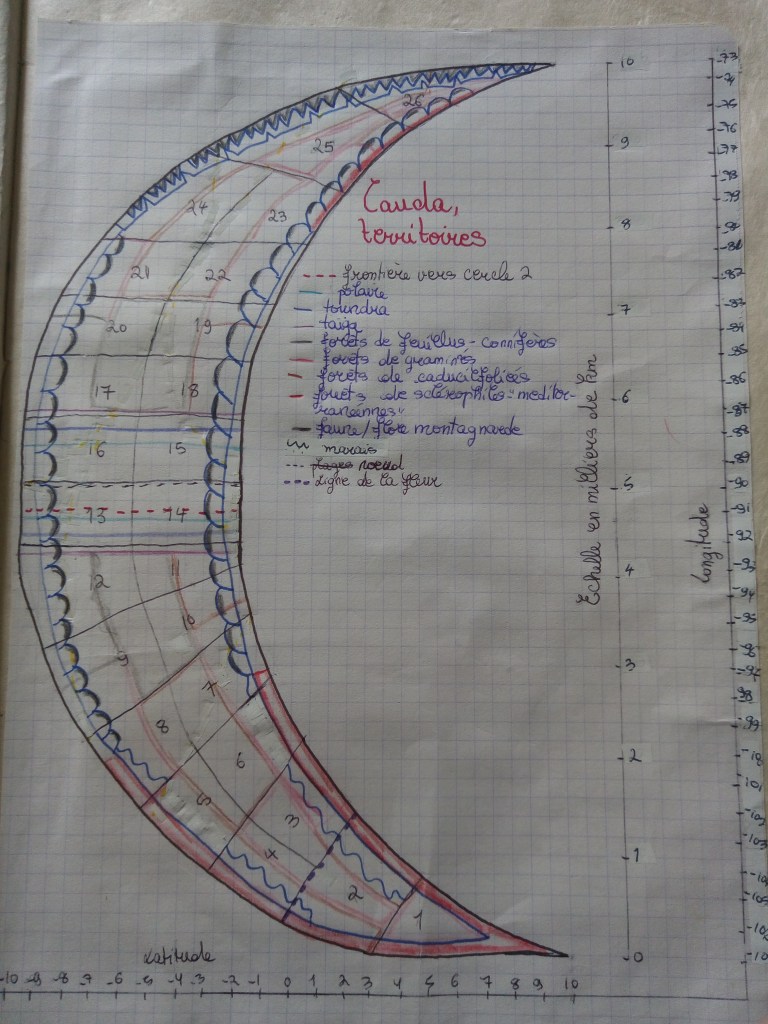 Cauda,
territoires
frontière vers cercle 2
polaire
toundra
taïga
forêts de feuillus - connifères
forêts de graminés
forêts de caducifoliés
forêts de sclérophiles "méditer-
ranéennes"
faune/flore montagnarde
marais
noeud
Ligne de la fleur
26
25
24
23
21
22
20
19
17
18
16
15
13
14
12
11
10
9
7
8
6
5
3
4
2
1
Echelle en milliers de km
10
9
8
7
6
5
4
3
2
1
0
longitude
-73
-74
-75
-76
-77
-78
-79
-82
-83
-84
-85
-86
-87
-88
-89
-90
-91
-92
-93
-94
-95
-96
-97
-98
-99
-101
-102
-103
Latitude
-10 -9 -8 -7 -6 -5 -4 -3 -2 -1 0 1 2 3 4 5 6 7 8 9 10